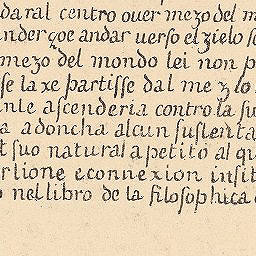 daral centro ouer mezo del m
ander çoe andar uerso el zielo so
mezo del mondo lei non p
se laxe partisse dal mezlo
ente ascenderia contro la su
a adoncha alcun sustenta
t suo natural apetito al qu
rtione e connexion insit
nel libro de la filosophica